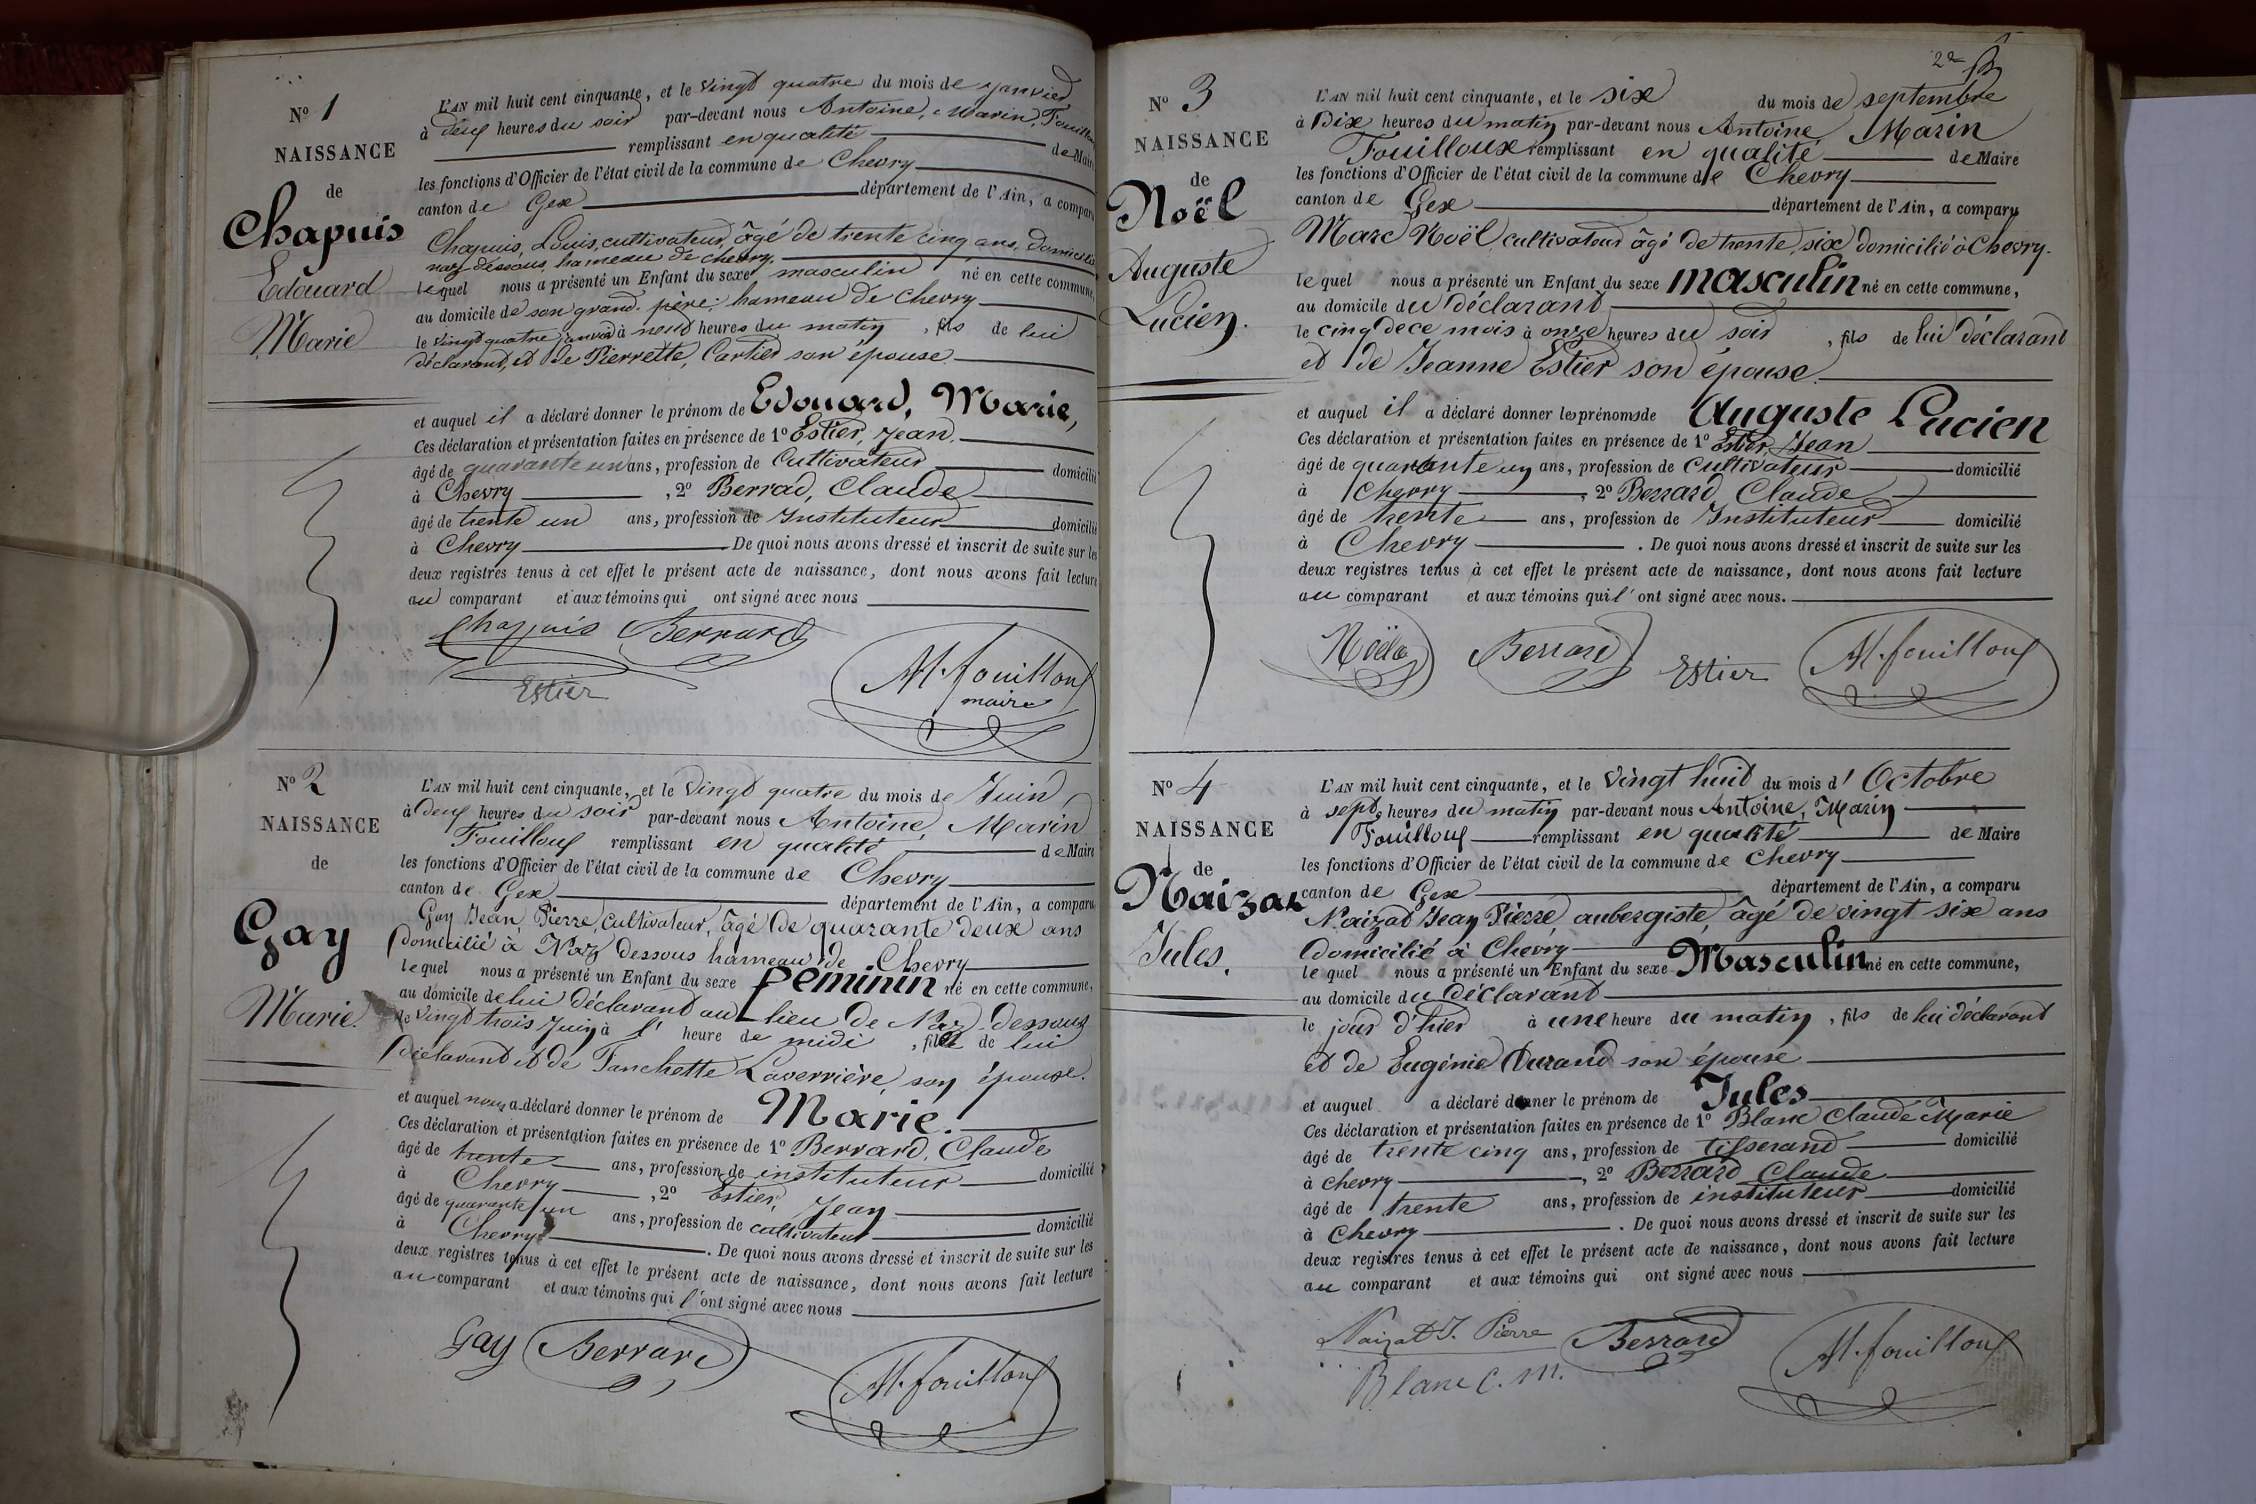 No 1
NAISSANCE
de
Chapuis
Edouard
Marie
L'AN mil huit cent cinquante, et le vingt quatre du mois de janvier
à deux heures du soir par-devant nous Antoine, Marin, Fouilloux
remplissant en qualité de Maire
les fonctions d'Officier de l'état civil de la commune de Chevry
canton de Gex département de l'Ain, a comparu
Chapuis, Louis, cultivateur, âgé de trente cinq ans, domicilié
naz-dessous, hameau de chevry,
lequel nous a présenté un Enfant du sexe masculin né en cette commune,
au domicile de son grand-père: hameau de chevry
le vingt quatre janvier à neuf heures du matin, fils de lui
déclarant, et de Pierrette, Cartier son épouse
et auquel il a déclaré donner le prénom de Edouard, Marie,
Ces déclaration et présentation faites en présence de 1o Estier, Jean,
âgé de quarante un ans, profession de Cultivateur domicilié
à Chevry, 2o Berrard, Claude
âgé de trente un ans, profession de Instituteur domicilié
à Chevry De quoi nous avons dressé et inscrit de suite sur les
deux registres tenus à cet effet le présent acte de naissance, dont nous avons fait lecture
au comparant et aux témoins qui ont signé avec nous
Chapuis Berrard
Estier
AM. fouilloux
maire
No 2
NAISSANCE
de
Gay
Marie.
L'AN mil huit cent cinquante, et le vingt quatre du mois de Juin
à deux heures du soir par-devant nous Antoine, Marin
Fouilloux remplissant en qualité de Maire
les fonctions d'Officier de l'état civil de la commune de Chevry
canton de Gex département de l'Ain, a comparu
Gay Jean, Pierre, Cultivateur, âgé de quarante deux ans
domicilié à Naz dessous hameau de Chevry
lequel nous a présenté un Enfant du sexe féminin né en cette commune,
au domicile de lui déclarant au lieu de Naz-dessous
le vingt trois Juin à l' heure de midi, fille de lui
déclarant et de Fanchette Laverrière, son épouse.
et auquel nous a déclaré donner le prénom de Marie.
Ces déclaration et présentation faites en présence de 1o Berrard, Claude
âgé de trente ans, profession de instituteur domicilié
à Chevry, 2o Estier, Jean
âgé de quarante un ans, profession de cultivateur domicilié
à Chevry. De quoi nous avons dressé et inscrit de suite sur les
deux registres tenus à cet effet le présent acte de naissance, dont nous avons fait lecture
au comparant et aux témoins qui l'ont signé avec nous
Gay Berrard
AM. fouilloux
No 3
NAISSANCE
de
Noël
Auguste
Lucien.
L'AN mil huit cent cinquante, et le six du mois de septembre
à Dix heures du matin par-devant nous Antoine Marin
Fouilloux remplissant en qualité de Maire
les fonctions d'Officier de l'état civil de la commune de Chevry
canton de Gex département de l'Ain, a comparu
Marc Noël cultivateur âgé de trente six domicilié à Chevry.
lequel nous a présenté un Enfant du sexe masculin né en cette commune,
au domicile du déclarant
le cinq de ce mois à onze heures du soir, fils de lui déclarant
et de Jeanne Estier son épouse
et auquel il a déclaré donner les prénoms de Auguste Lucien
Ces déclaration et présentation faites en présence de 1o Estier, Jean
âgé de quarante un ans, profession de Cultivateur domicilié
à Chevry, 2o Berrard Claude
âgé de trente ans, profession de Instituteur domicilié
à Chevry. De quoi nous avons dressé et inscrit de suite sur les
deux registres tenus à cet effet le présent acte de naissance, dont nous avons fait lecture
au comparant et aux témoins qui l'ont signé avec nous.
Noël Berrard Estier AM. fouilloux
No 4
NAISSANCE
de
Naizat
Jules.
L'AN mil huit cent cinquante, et le vingt huit du mois d'Octobre
à sept heures du matin par-devant nous Antoine, Marin
Fouilloux remplissant en qualité de Maire
les fonctions d'Officier de l'état civil de la commune de Chevry
canton de Gex département de l'Ain, a comparu
Naizat Jean Pierre, aubergiste, âgé de vingt six ans
domicilié à Chevry
lequel nous a présenté un Enfant du sexe Masculin né en cette commune,
au domicile du déclarant
le jour d'hier à une heure du matin, fils de lui déclarant
et de Eugénie Durand son épouse
et auquel a déclaré donner le prénom de Jules
Ces déclaration et présentation faites en présence de 1o Blanc Claude Marie
âgé de trente cinq ans, profession de tisserand domicilié
à Chevry, 2o Berrard Claude
âgé de trente ans, profession de instituteur domicilié
à Chevry. De quoi nous avons dressé et inscrit de suite sur les
deux registres tenus à cet effet le présent acte de naissance, dont nous avons fait lecture
au comparant et aux témoins qui ont signé avec nous
Naizat J. Pierre Berrard AM. fouilloux
Blanc C. M.